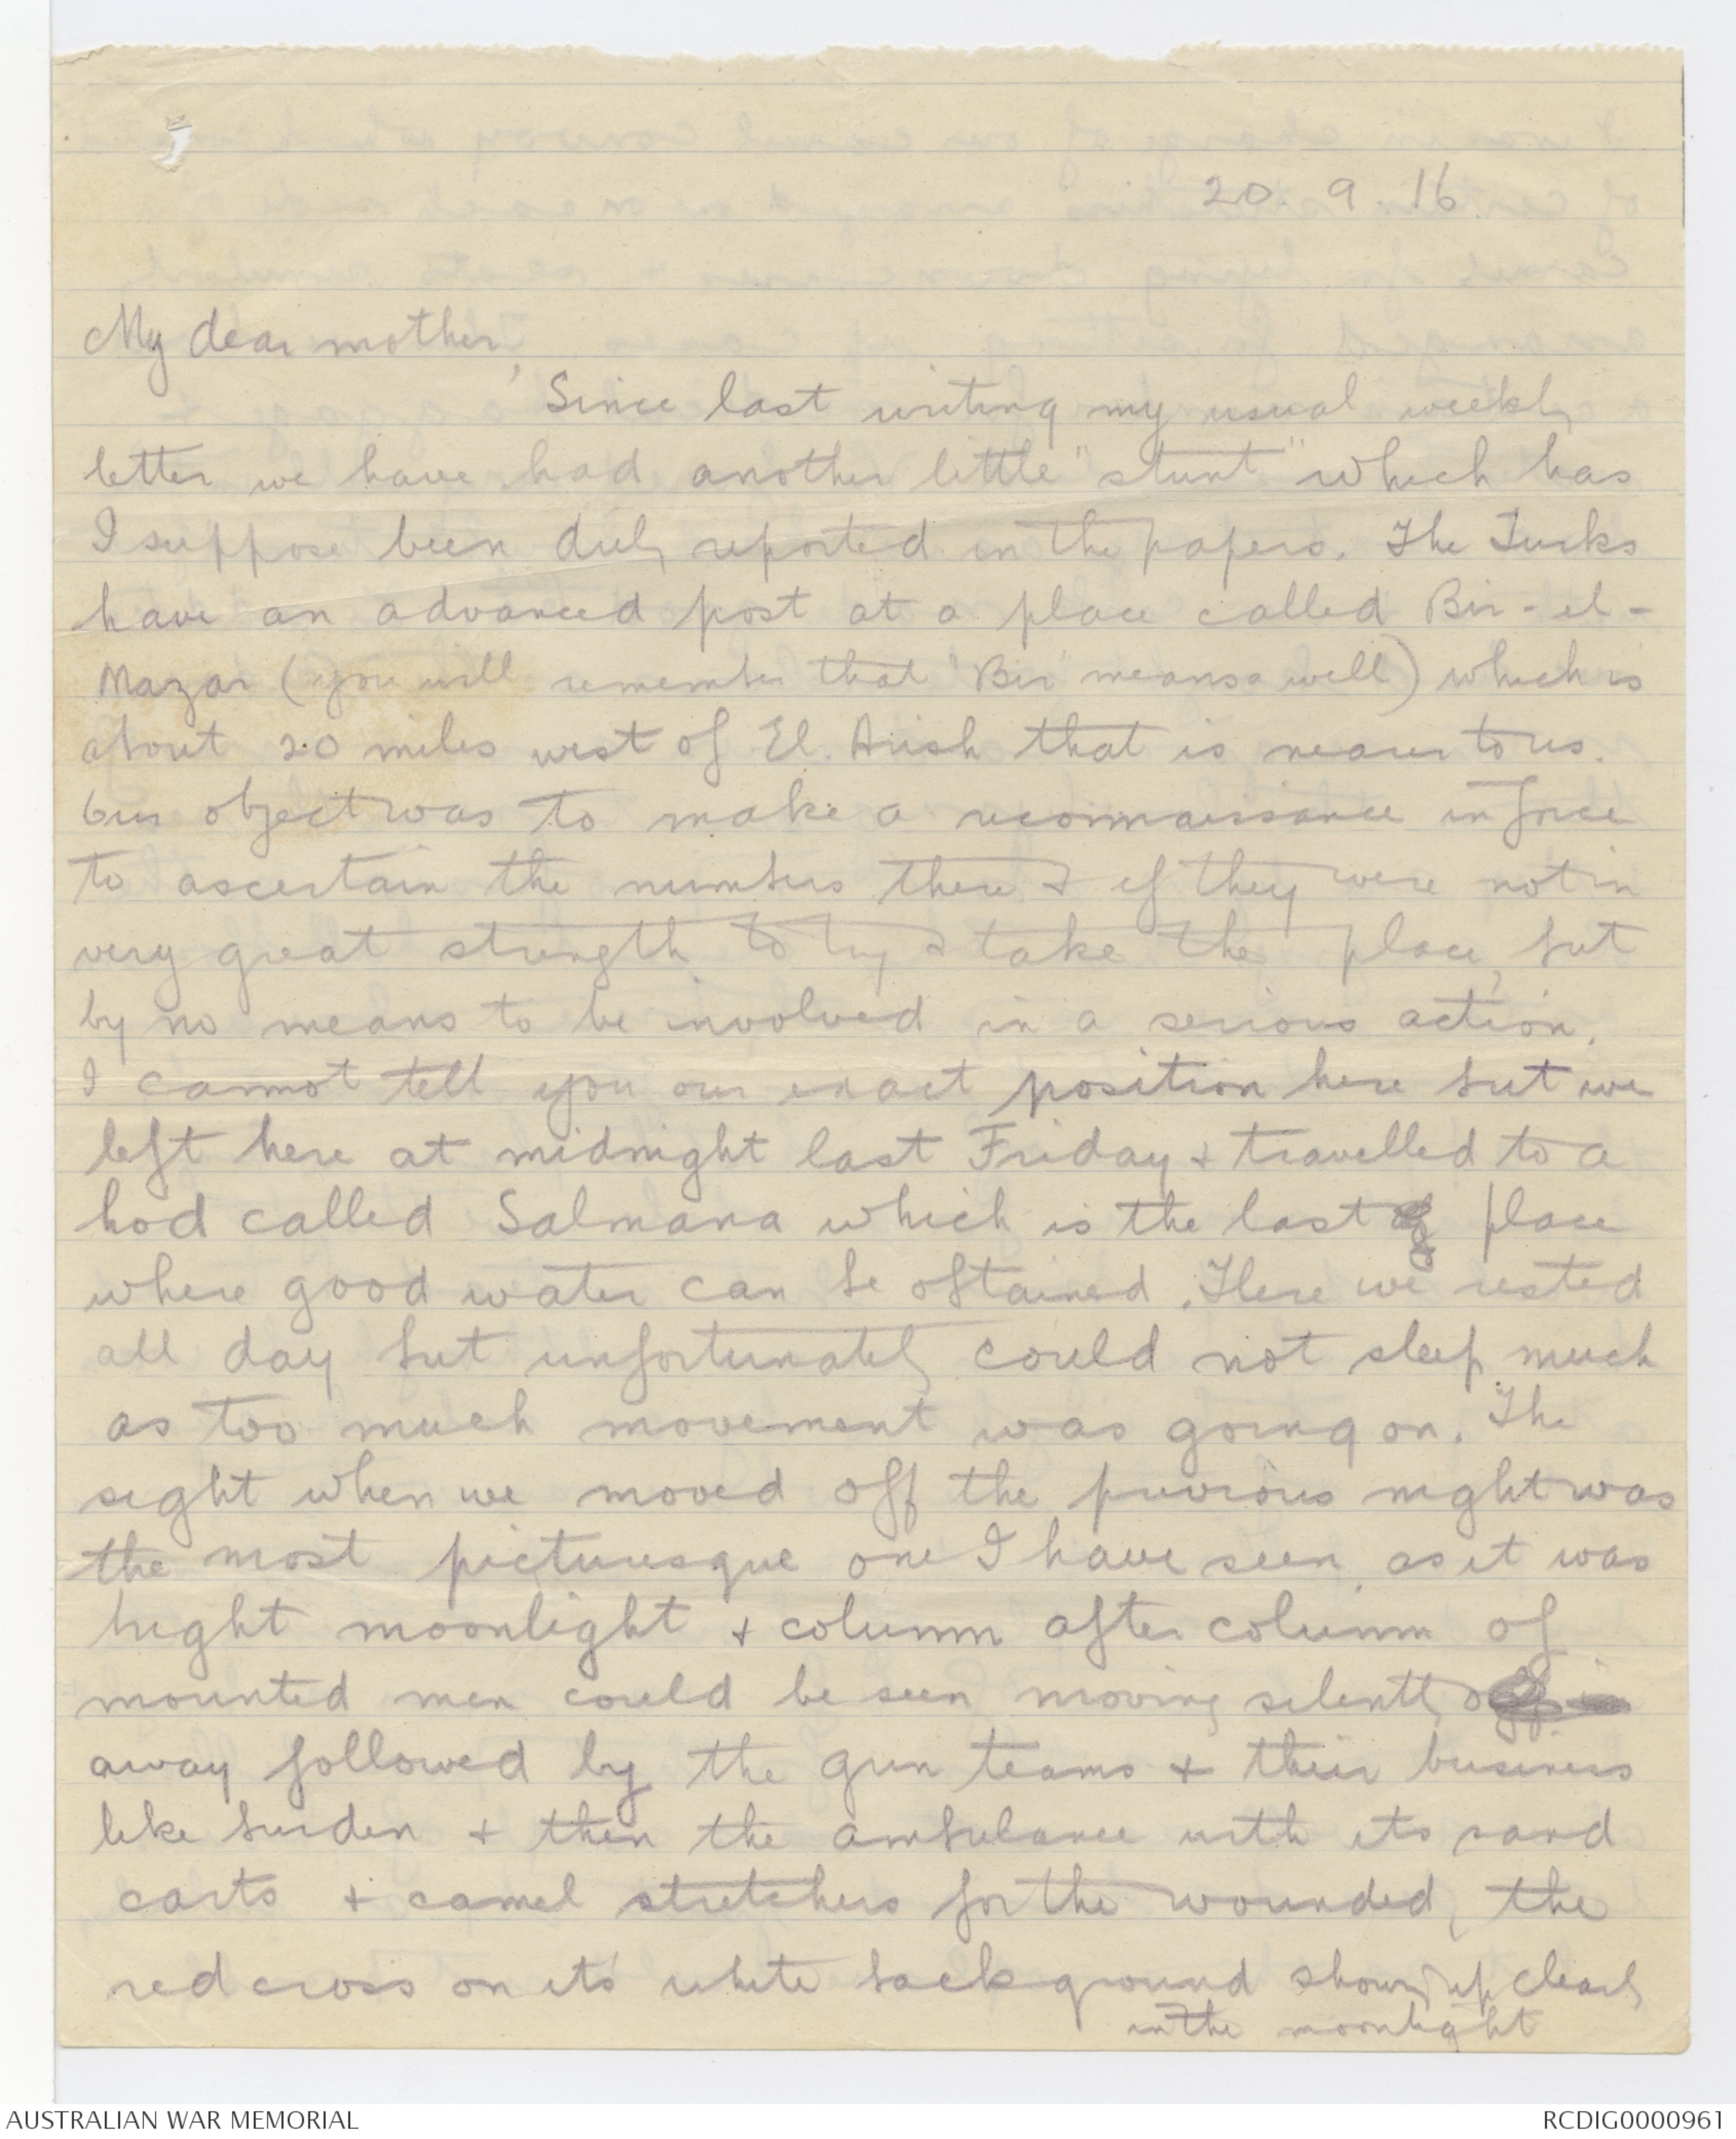 20. 9. 16.
My dear mother,
Since last writing my usual weekly
letter we have had another little "stunt" which has
I suppose been duly reported in the papers. The Turks
have an advanced post at a place called Bir-el-
Mazar (you will remember that "Bir" means a well) which is
about 20 miles west of El. Arish that is nearer to us.
Our object was to make a reconnaissance in force
to ascertain the numbers there & if they were not in
very great strength to try & take the place, but
by no means to be involved in a serious action.
I cannot tell you our exact position here but we
left here at midnight last Friday & travelled to a
hod called Salmana which is the last place
where good water can be obtained. Here we rested
all day but unfortunately could not sleep much
as too much movement was going on. The
sight when we moved off the previous night was
the most picturesque one I have seen, as it was
bright moonlight & column after column of
mounted men could be seen moving silently
away followed by the gun teams & their business
like burden & then the ambulance with its sand
carts & camel stretchers for the wounded, the
red cross on its white background showing up clearly
in the moonlight
AUSTRALIAN WAR MEMORIAL
RCDIG0000961